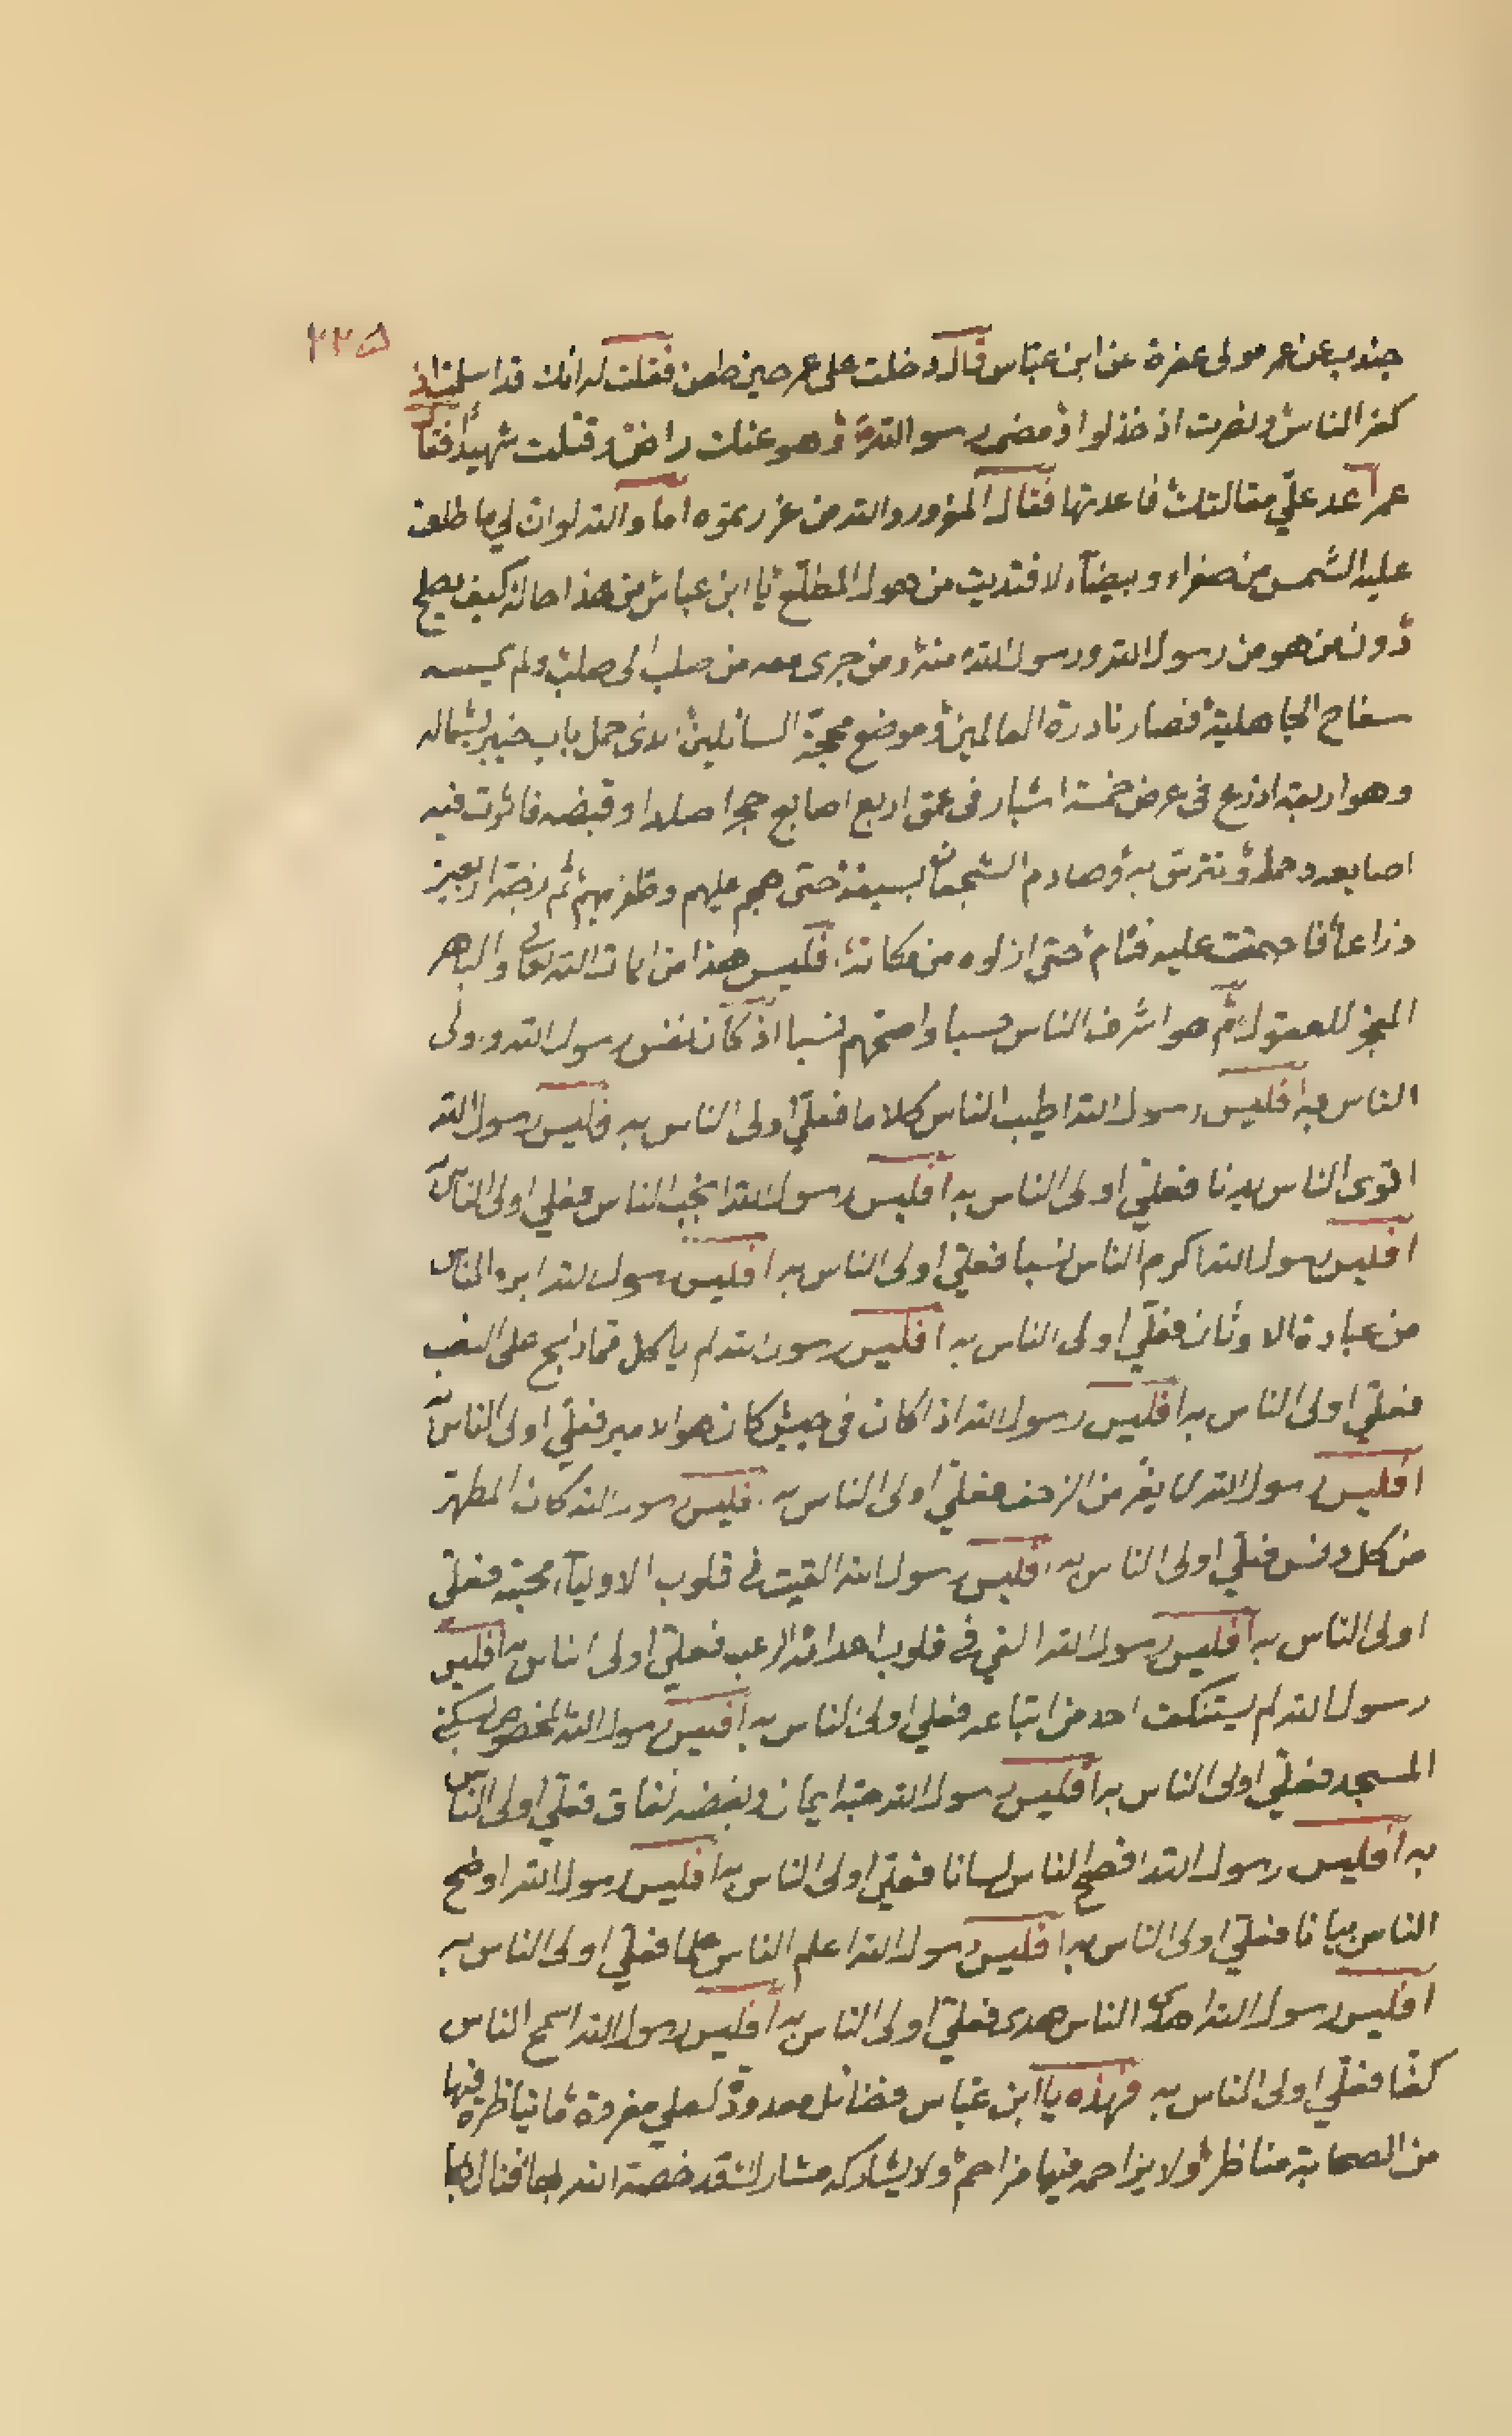 ٢٢٥
جندب عن عمر مولى عفرة عن ابن عباس قال دخلت على عمر حين طعن فقلت له انك قد اسلمت اذ
كفر الناس ونصرت اذ خذلوا ومضى رسول الله وهو عنك راض وقتلت شهيدا فقال
عمر اعد علي مقالتك فاعدتها فقال المغرور والله من غررتموه اما والله لو ان لي ما طلعت
عليه الشمس من صفراء وبيضاء لافتديت من هول المطلع يا ابن عباس من هذا حاله كيف يصلح
دون من هو من رسول الله ورسول الله منه ومن جرى معه من صلب الى صلب ولم يمسه
سفاح الجاهلية فصار نادرة العالمين وموضع محجة السائلين الذى حمل باب خيبر بشماله
وهو اربعة اذرع فى عرض خمسة اشبار فى عمق اربع اصابع حجرا صلدا وقبضه فاثرت فيه
اصابعه وحمله وتترس به وصادم الشجعان بسيفه حتى هجم عليهم وظفر بهم ثم زجه اربعين
ذراعا فاجمعت عليه فئام حتى ازلوه من مكانه فليس هذا من ايات الله تعالى والباهر
المعجز للعقول ثم هو اشرف الناس حسبا واضخمهم نسبا اذ كان نفس رسول الله واولى
الناس به افليس رسول الله اطيب الناس كلاما فعلي اولى الناس به فليس رسول الله
اقوى الناس بدنا فعلي اولى الناس به افليس رسول الله انجب الناس فعلي اولى الناس به
افليس رسول الله اكرم الناس نسبا فعلي اولى الناس به افليس رسول الله ابرء الناس
من عبادة الاوثان فعلي اولى الناس به افليس رسول الله لم ياكل مما ذبح على النصب
فعلي اولى الناس به افليس رسول الله اذا كان فى جيش كان هو الامير فعلي اولى الناس به
افليس رسول الله لا يفر من الزحف فعلي اولى الناس به افليس رسول الله كان المطهر
من كل دنس فعلي اولى الناس به افليس رسول الله القيت فى قلوب الاولياء محبته فعلي
اولى الناس به افليس رسول الله القي فى قلوب اعدائه الرعب فعلي اولى الناس به افليس
رسول الله لم يستنكف احد من اتباعه فعلي اولى الناس به افليس رسول الله المخصوص بسكنى
المسجد فعلي اولى الناس به افليس رسول الله حبه ايمان وبغضه نفاق فعلي اولى الناس
به افليس رسول الله افصح الناس لسانا فعلي اولى الناس به افليس رسول الله اوضح
الناس بيانا فعلي اولى الناس به افليس رسول الله اعلم الناس علما فعلي اولى الناس به
افليس رسول الله اهدى الناس هدى فعلي اولى الناس به افليس رسول الله اسمح الناس
كفا فعلي اولى الناس به فهذه يا ابن عباس فضائل معدودة لعلي معروفة ما يناظره فيها
من الصحابة مناظر ولا يزاحمه فيها مزاحم ولا يشاركه مشارك قد خصه الله بها فنالها